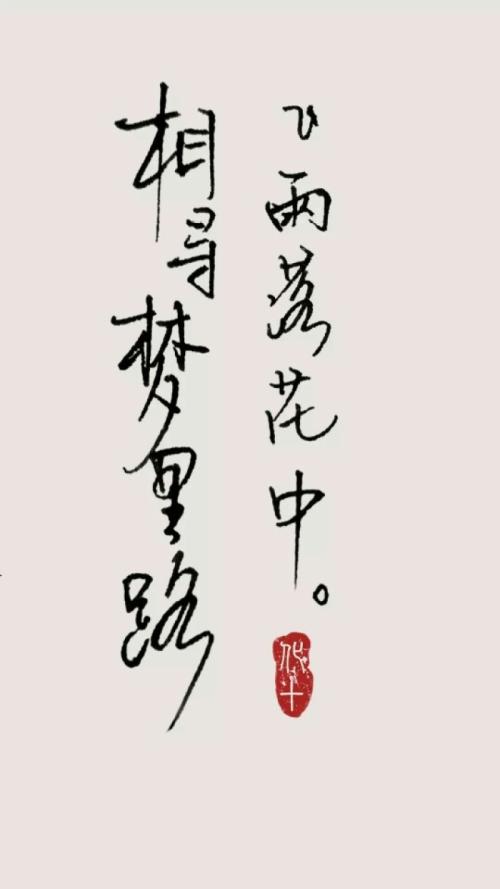 相寻梦里路
飞雨落花中。
华